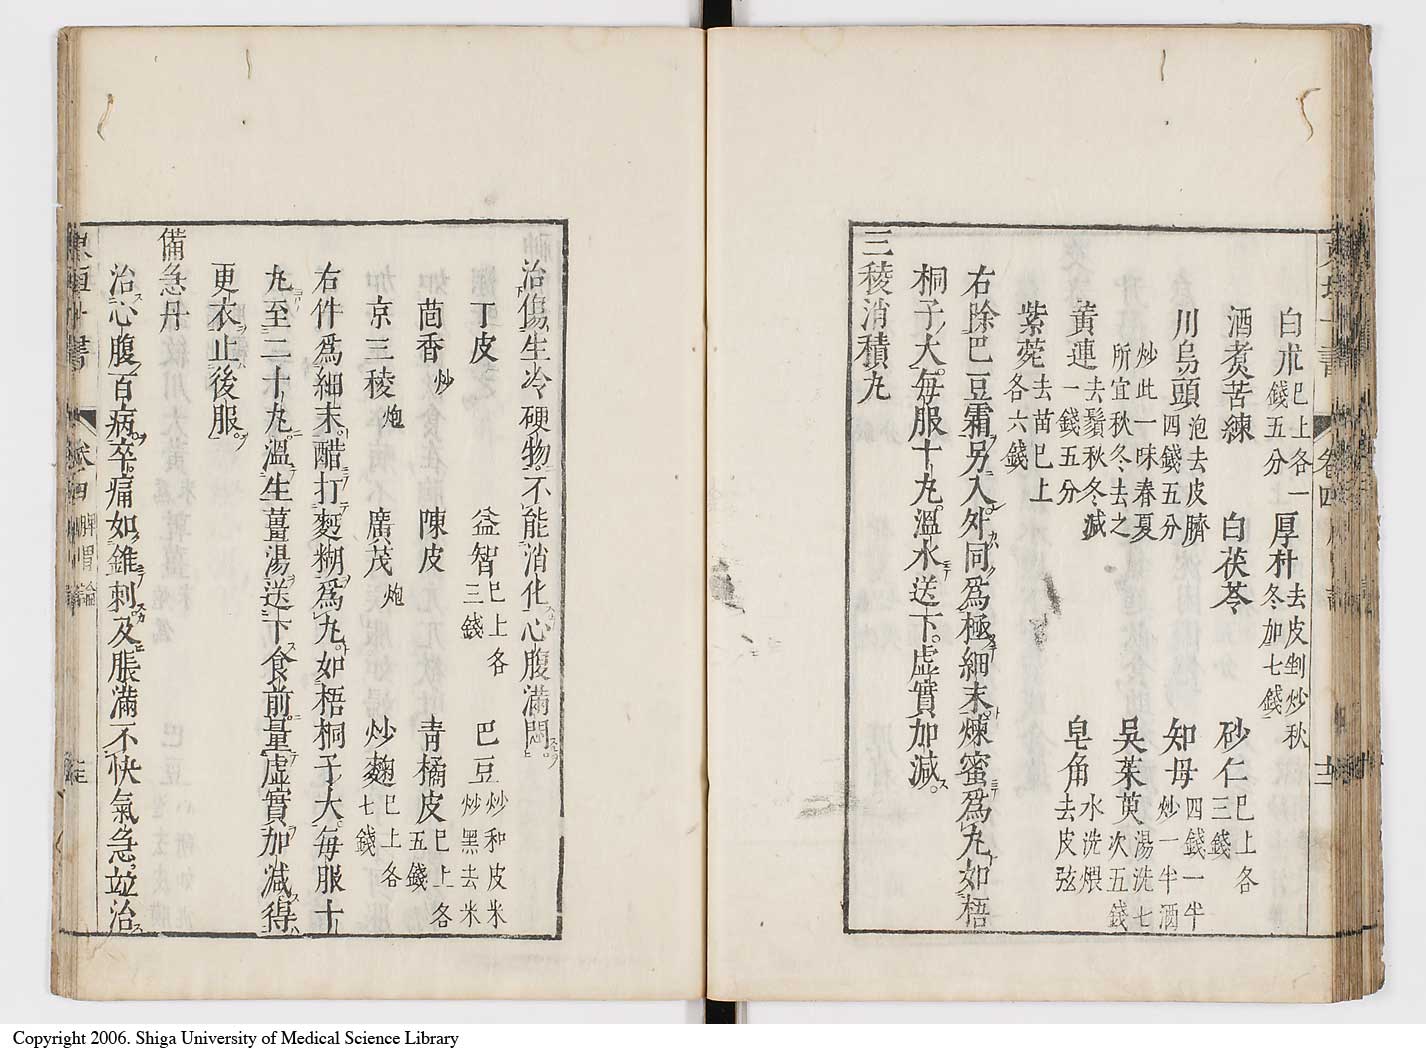 白朮 巳上各一錢五分 厚朴 去皮剉炒秋冬加七錢
酒煮苦練 白茯苓 砂仁 巳上各三錢
川烏頭 泡去皮臍四錢五分 知母 四錢一半炒一半酒
炒此一味春夏所宜秋冬去之 吳茱萸 湯洗七次五錢
黃連 去鬚秋冬減一錢五分 皂角 水洗煨去皮弦
紫菀 去苗巳上各六錢
右除巴豆霜另入外同爲極細末煉蜜爲丸如梧
桐子大每服十丸溫水送下虛實加減
三稜消積丸
治傷生冷硬物不能消化心腹滿悶
丁皮 益智 巳上各三錢 巴豆 炒和皮米炒黑去米
茴香 炒 陳皮 青橘皮 巳上各五錢
京三稜 炮 廣茂 炮 炒麴 巳上各七錢
右件爲細末醋打麪糊爲丸如梧桐子大每服十
丸至二十丸溫生薑湯送下食前量虛實加減得
更衣止後服
備急丹
治心腹百病卒痛如錐刺及脹滿不快氣急並治
卷四 脾胃論
Copyright 2006. Shiga University of Medical Science Library